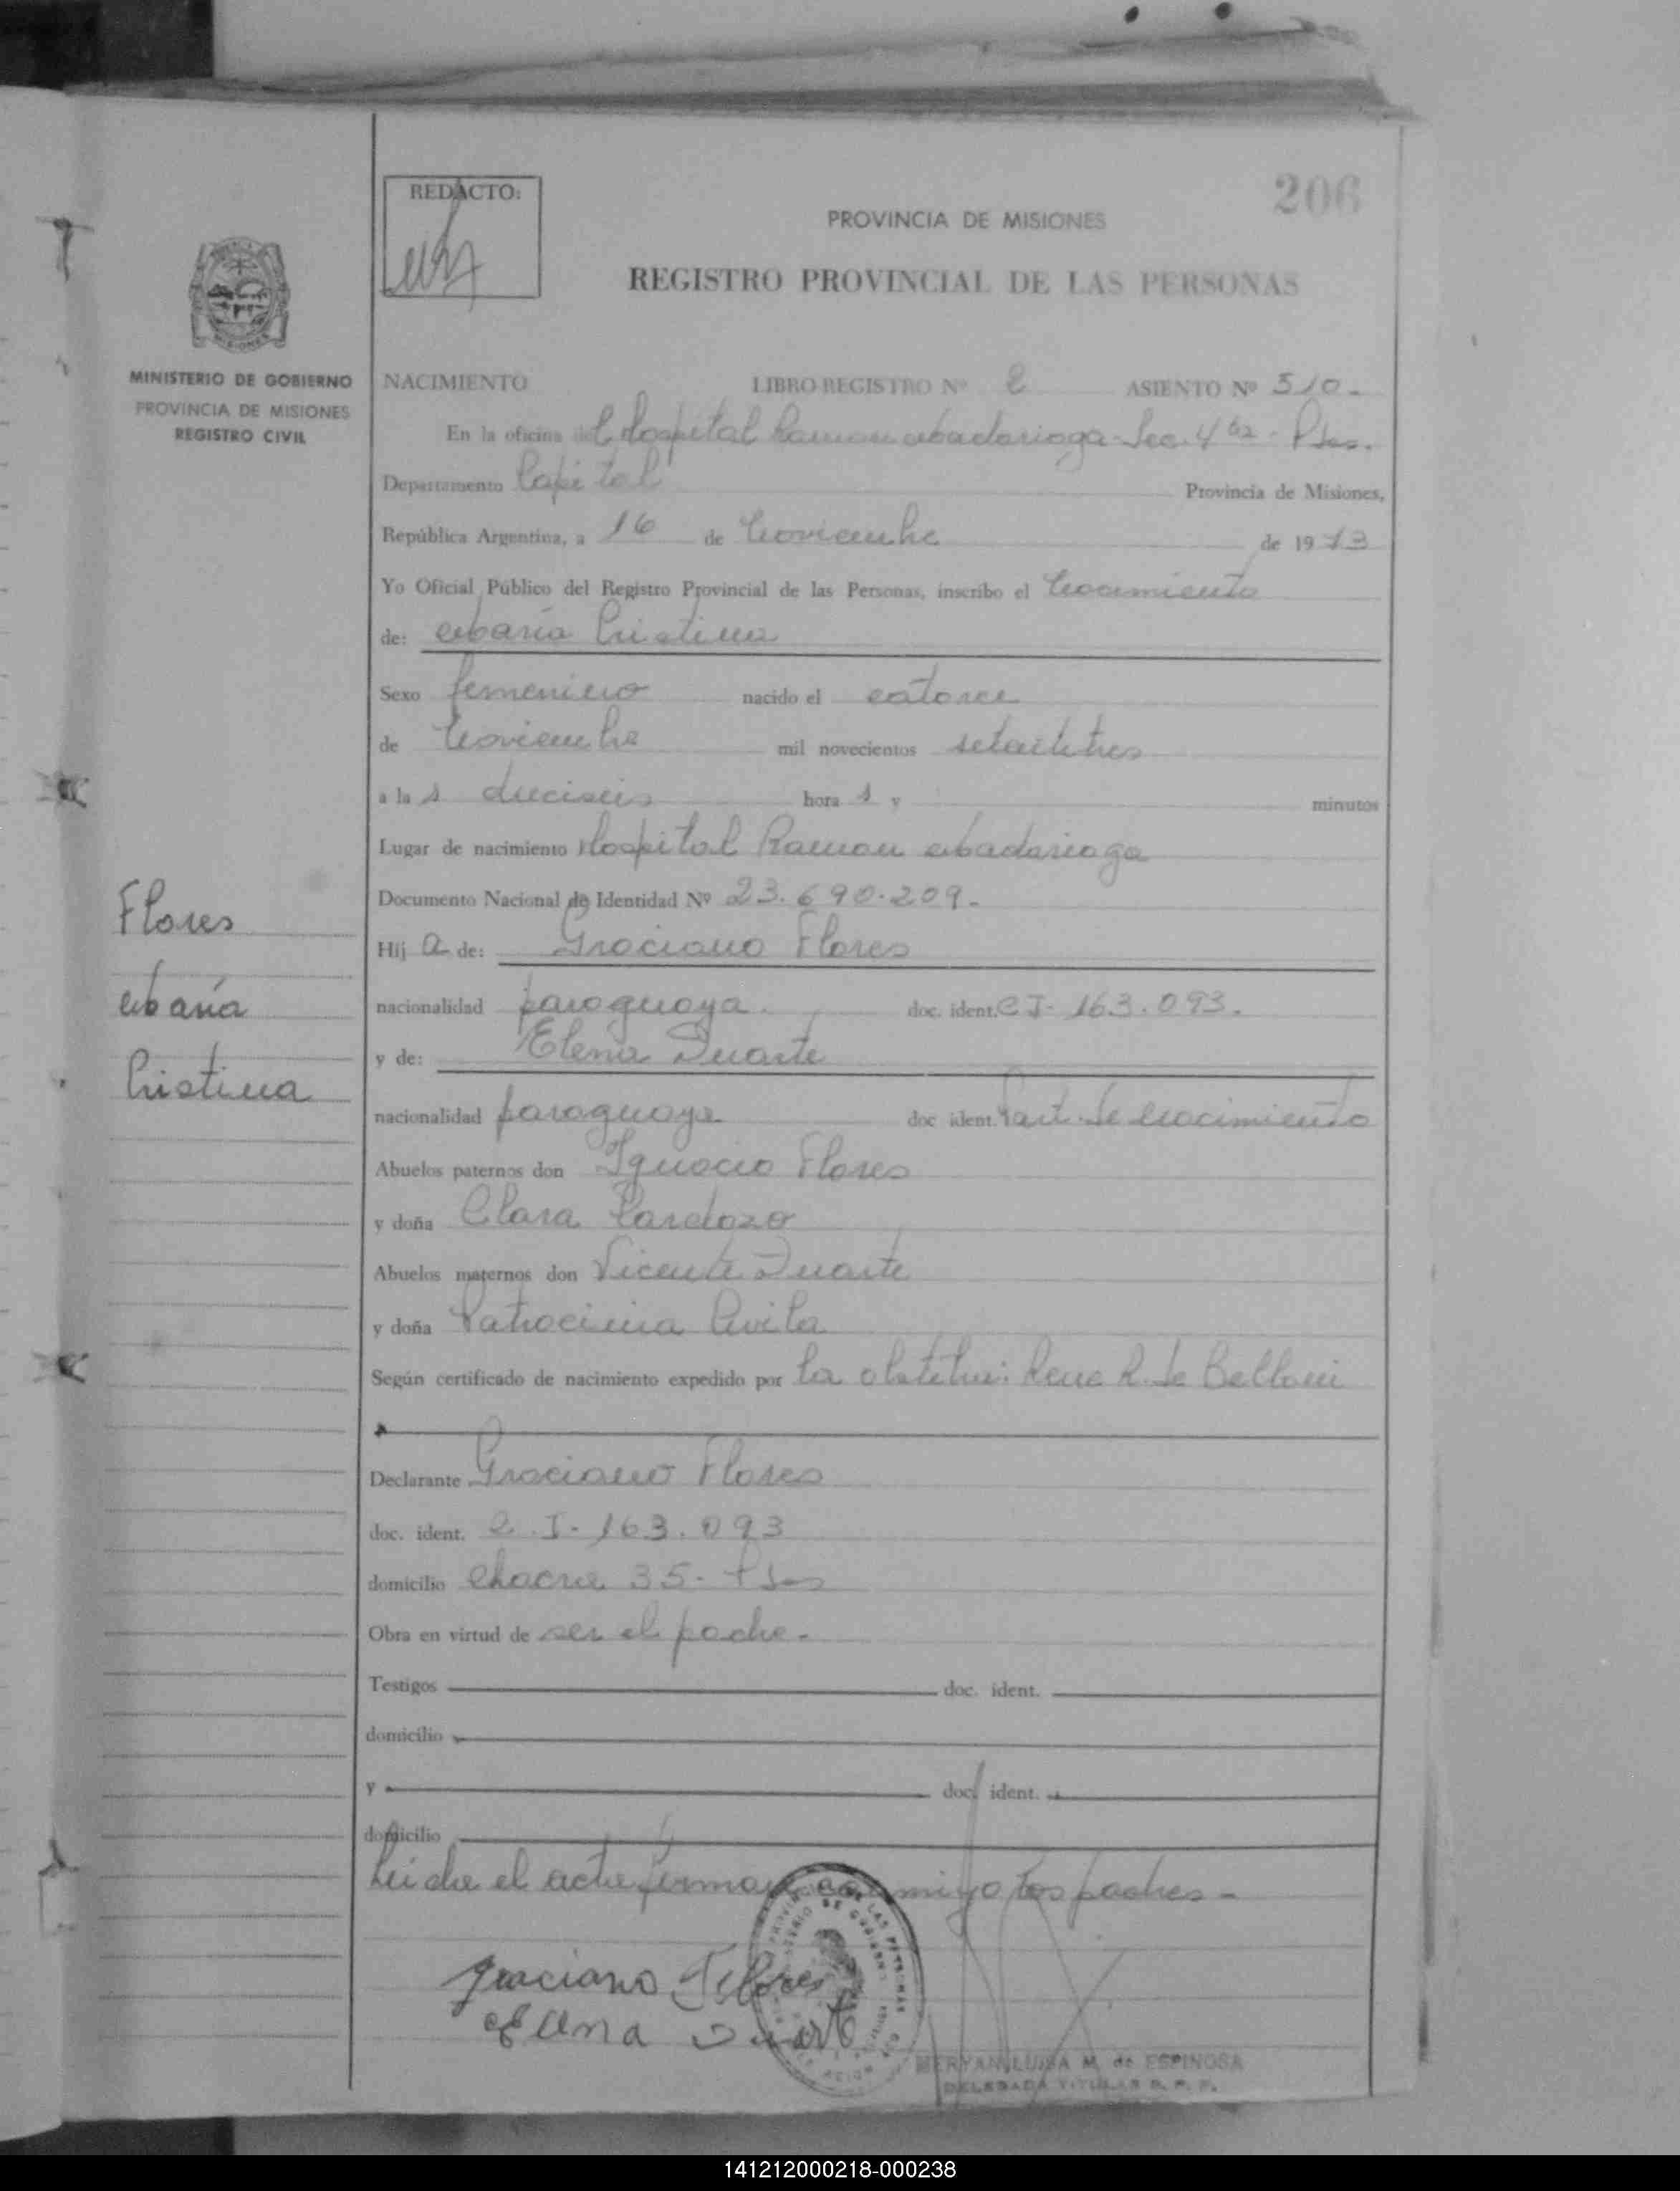 206
REDACTO:
PROVINCIA DE MISIONES
REGISTRO PROVINCIAL DE LAS PERSONAS
MINISTERIO DE GOBIERNO
PROVINCIA DE MISIONES
REGISTRO CIVIL
NACIMIENTO LIBRO REGISTRO Nº 2 ASIENTO Nº 510-
En la oficina del Hospital Ramon Madariaga - Sec. 4ta - Pdas.
Departamento Capital Provincia de Misiones,
República Argentina, a 16 de Noviembre de 1973
Yo Oficial Público del Registro Provincial de las Personas, inscribo el Nacimiento
de: María Cristina
Sexo femenino nacido el catorce
de Noviembre mil novecientos setentitres
a las dieciseis horas y minutos
Lugar de nacimiento Hospital Ramon Madariaga
Documento Nacional de Identidad Nº 23.690.209.-
Flores
María
Cristina
Hija de: Graciano Flores
nacionalidad paraguaya. doc. ident. C I- 163.093.
y de: Elena Duarte
nacionalidad paraguaya doc ident. Part. de nacimiento
Abuelos paternos don Ignacio Flores
y doña Clara Cardozo
Abuelos maternos don Vicente Duarte
y doña Patrocinia Avila
Según certificado de nacimiento expedido por la obstetri: Rene R. de Belloni
Declarante Graciano Flores
doc. ident. C.I- 163.093
domicilio chacra 35- Pdas
Obra en virtud de ser el padre-
Testigos doc. ident.
domicilio
y doc. ident.
domicilio
Leida el acta firman conmigo los padres-
Graciano Flores
Elena Duarte
MERYAN LUISA M. de ESPINOSA
DELEGADA TITULAR R. P. P.
141212000218-000238